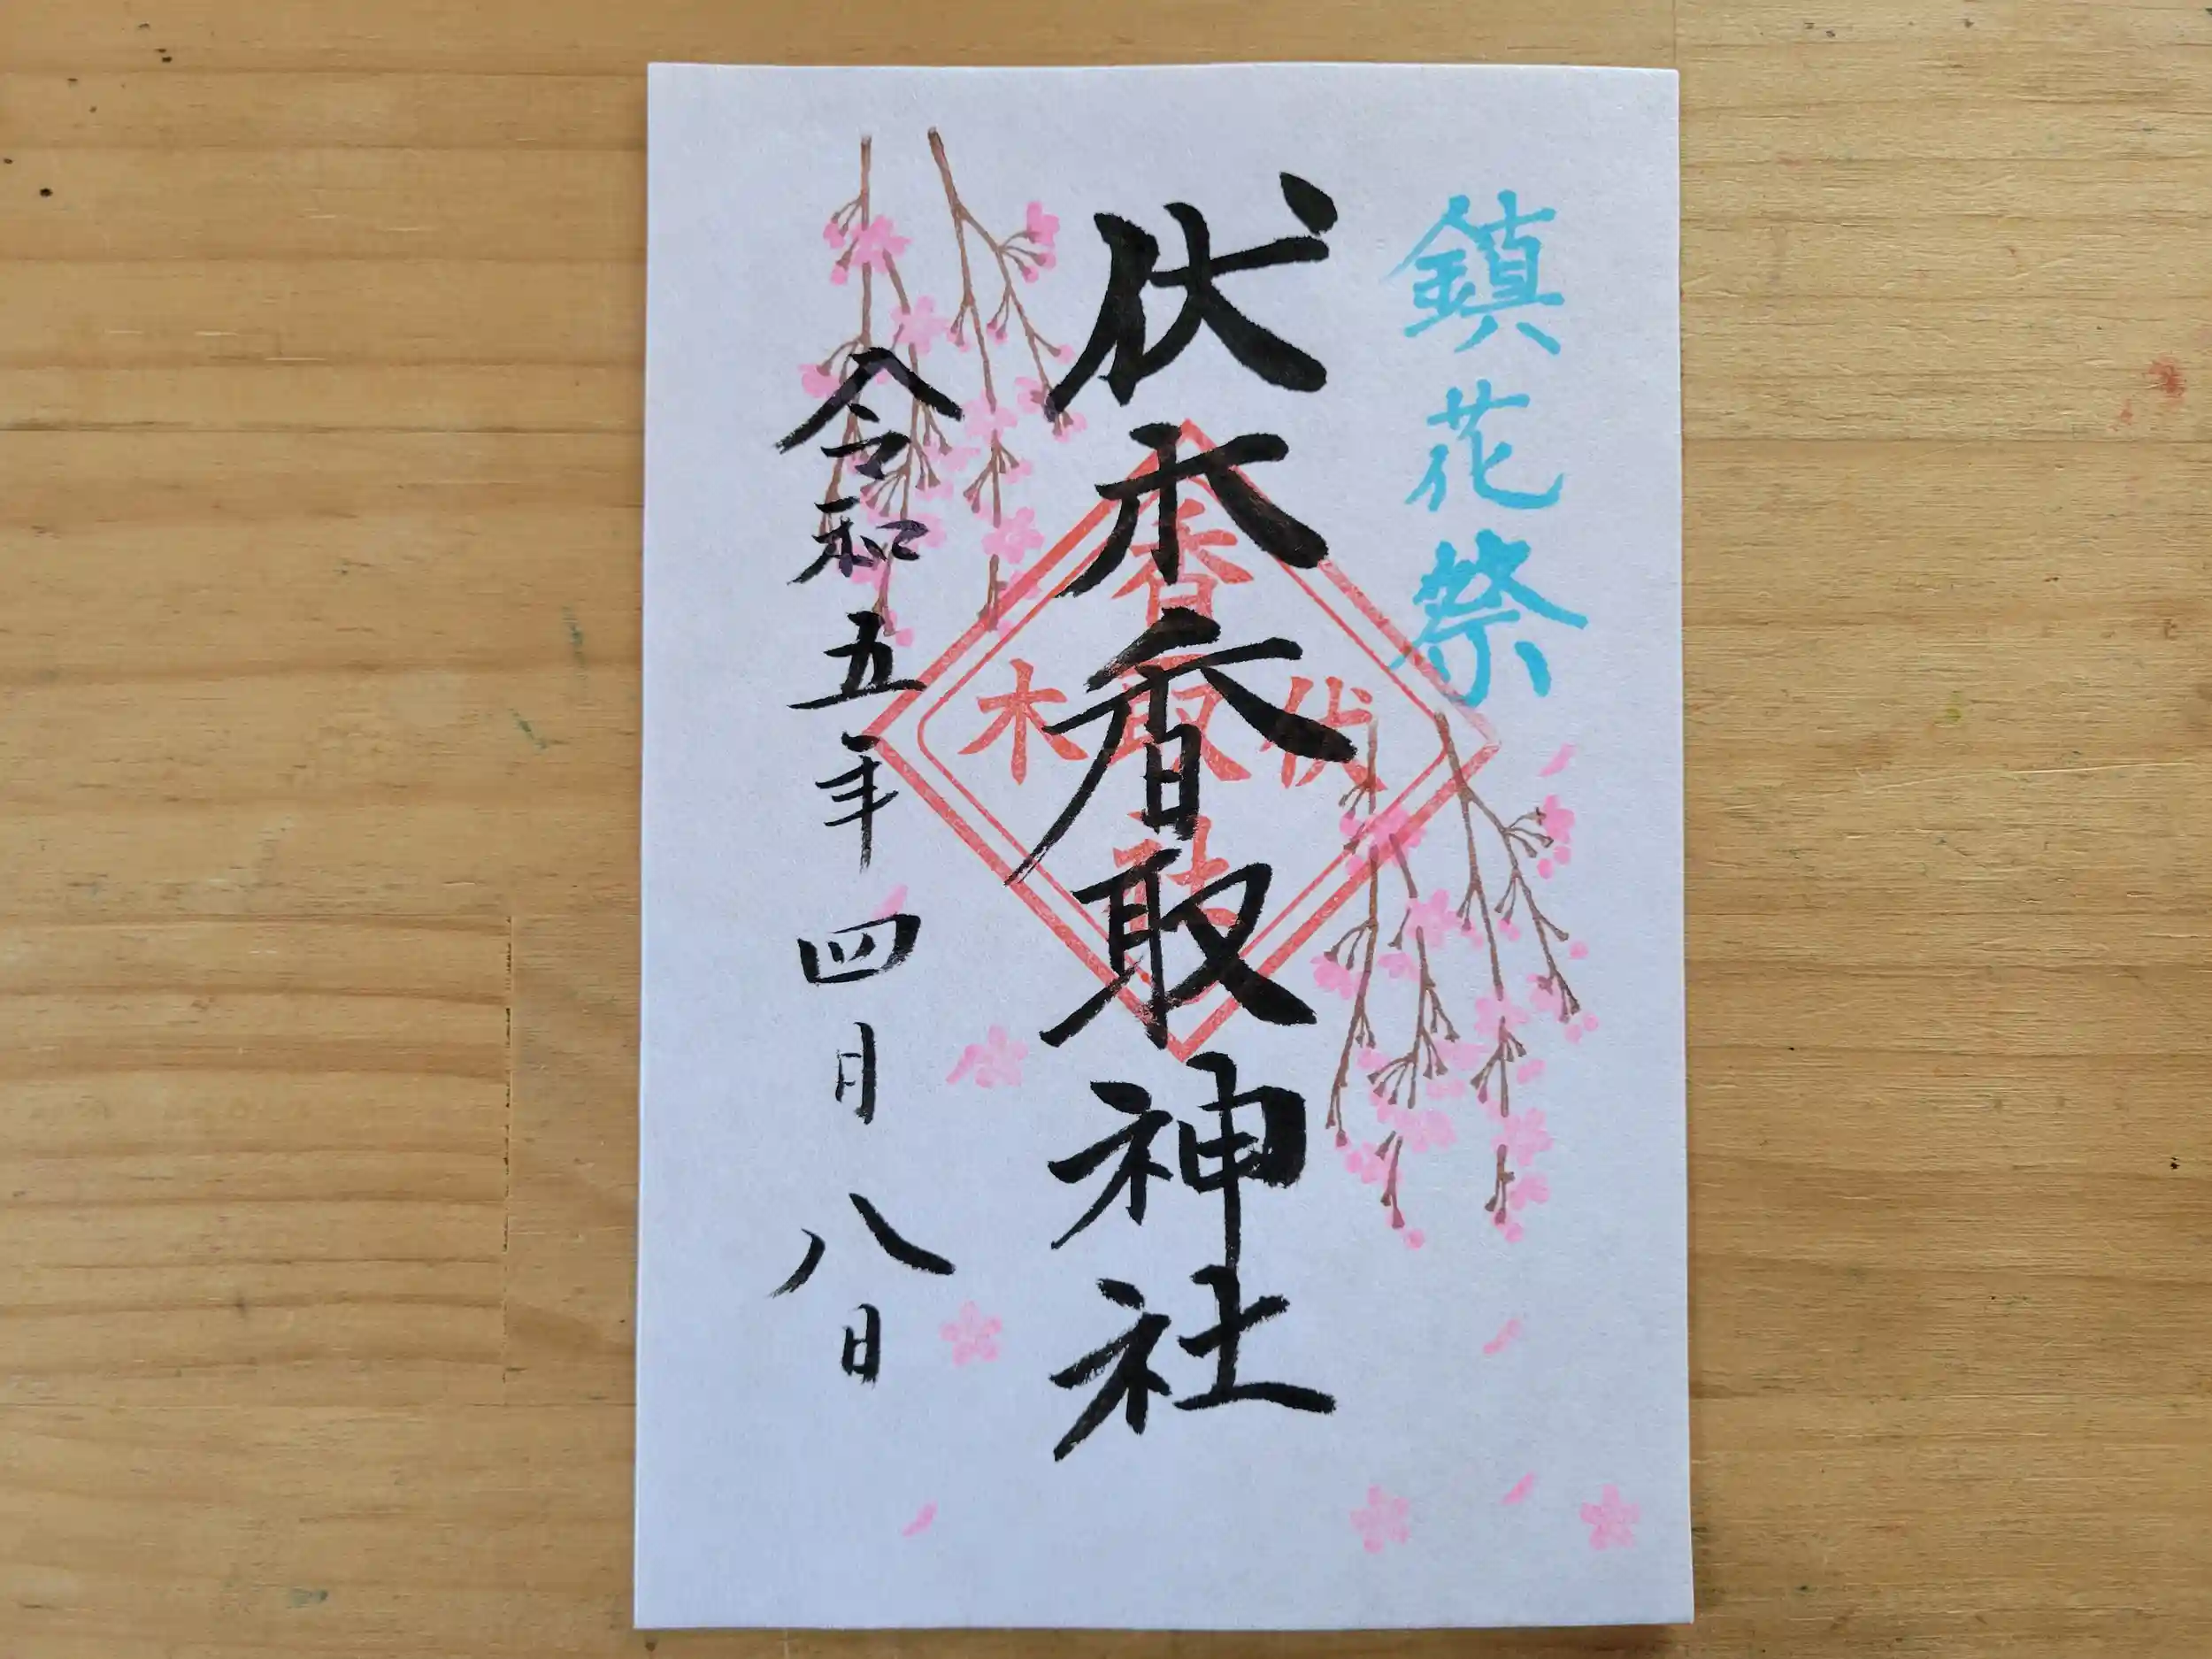 鎮花祭
伏木香取神社
香
伏取木
令和五年四月八日